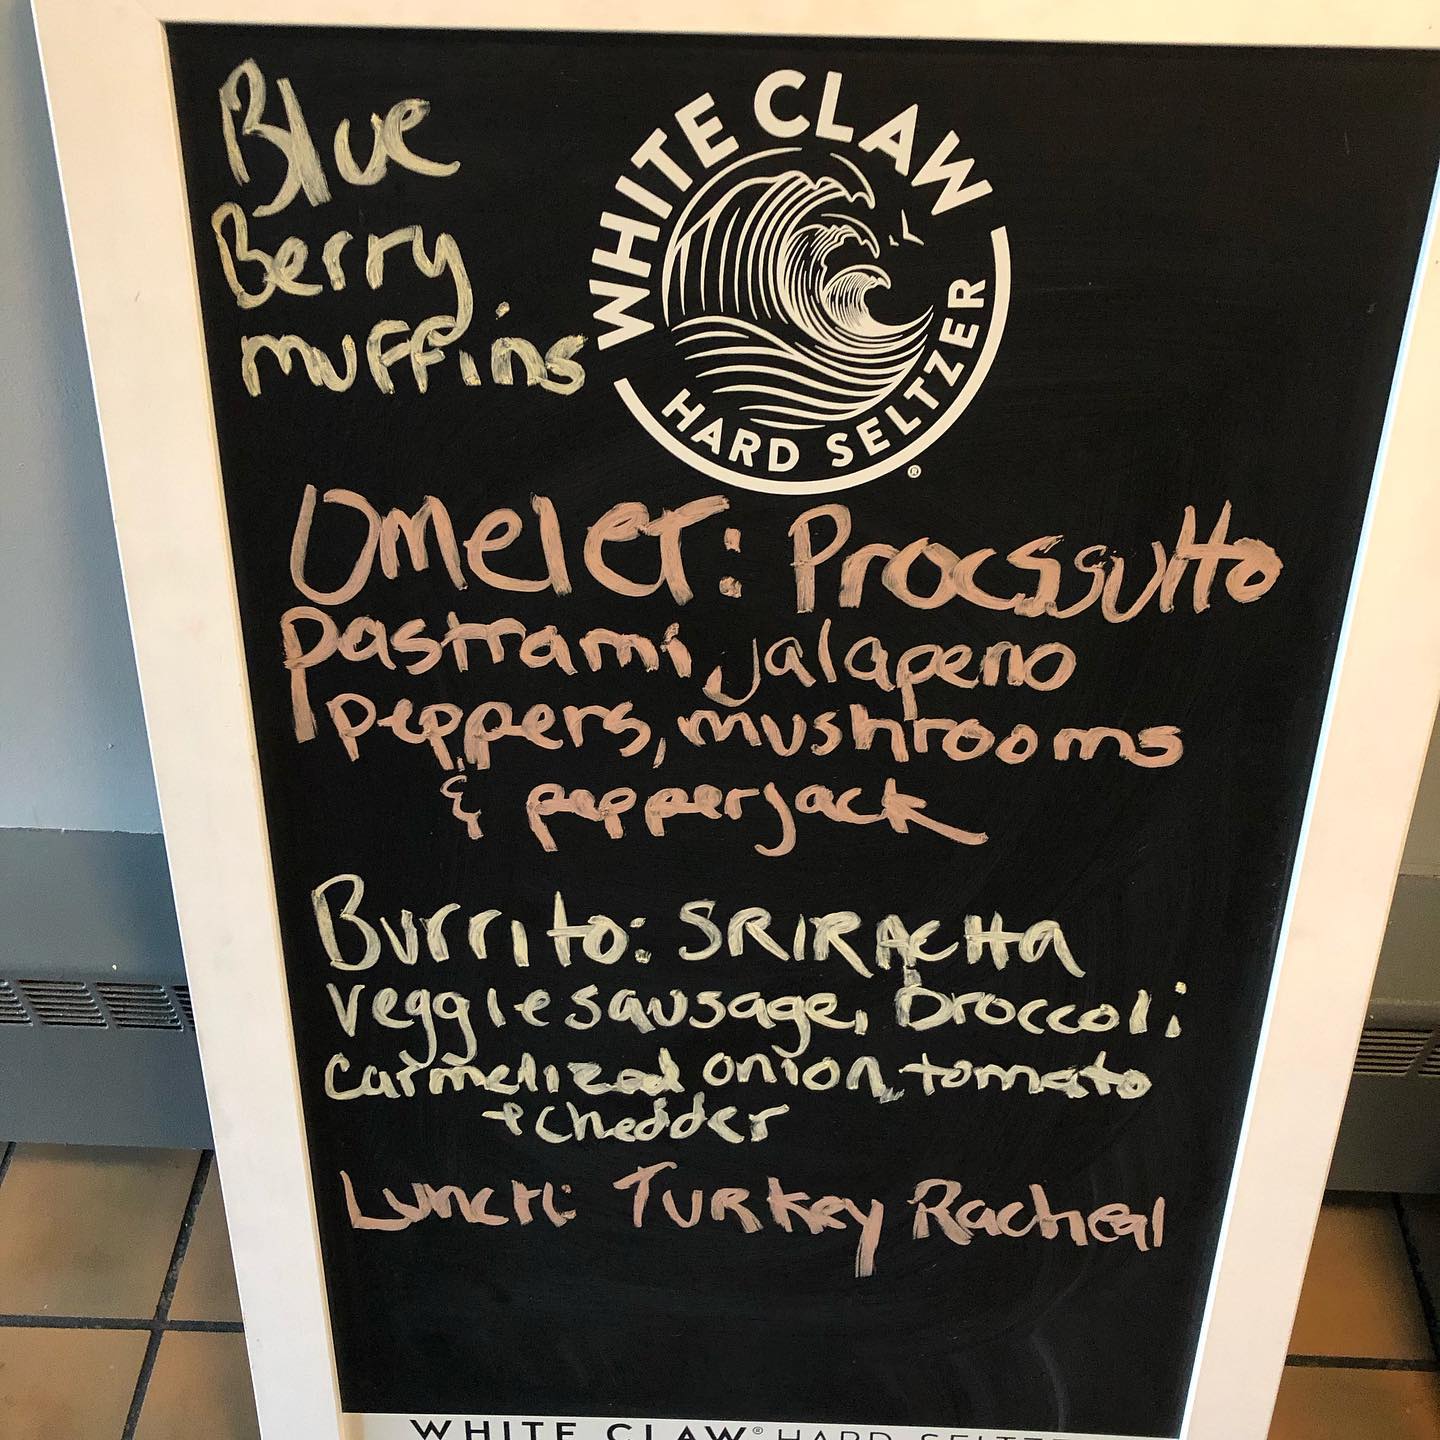 Blue
Berry
muffins
WHITE CLAW
HARD SELTZER
®
Omelet: Procssuitto
pastrami, jalapeno
peppers, mushrooms
& pepperjack
Burrito: SRIRACHA
veggie sausage, broccoli
carmelized onion, tomato
+ chedder
Lunch: Turkey Racheal
WHITE CLAW® HARD SELTZE